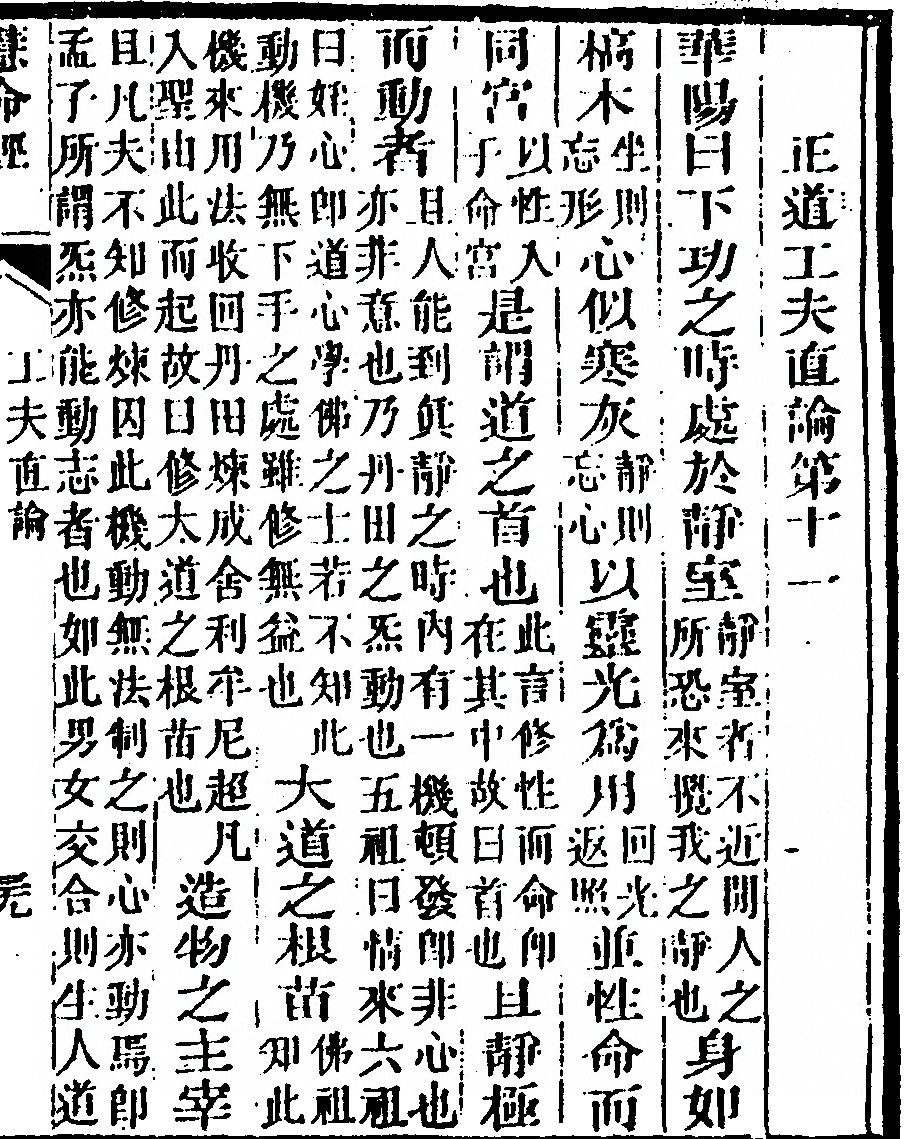 正道工夫直論第十一
華陽曰下功之時處於靜室靜室者不近閒人之所恐來攪我之靜也身如
槁木坐則忘形心似寒灰靜則忘心以靈光為用回光返照並性命而
同宮以性入于命宮是謂道之首也此言修性而命即在其中故曰首也且靜極
而動者且人能到眞靜之時內有一機頓發卽非心也亦非意也乃丹田之炁動也五祖曰情來六祖
曰奸心卽道心學佛之士若不知此動機乃無下手之處雖修無益也大道之根苗佛祖知此
機來用法收回丹田煉成舍利牟尼超凡入聖由此而起故曰修大道之根苗也造物之主宰
且凡夫不知修煉因此機動無法制之則心亦動焉卽孟子所謂炁亦能動志者也如此男女交合則生人道
慧命經 工夫直論